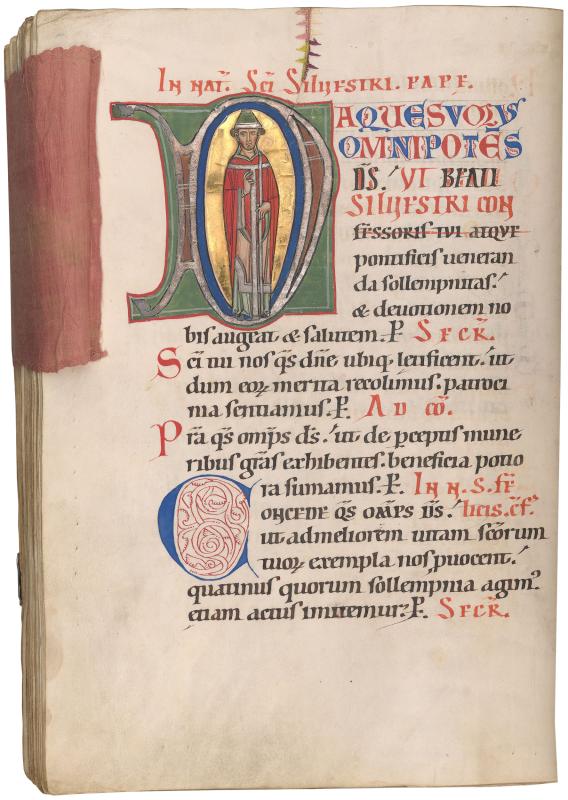 IN NAT̄. SC̄I SILVESTRI. PAPE.
DA QUESUM̄
OMNIPOTĒS
DS̄. UT BEATI
SILVESTRI CON
FESSORIS TUI ATQUE
pontificis ueneran
da sollempnitas.
& deuotionem no
bis augeat & salutem. P̄. SECR̄.
Sc̄i tui nos qs̄ dn̄e ubiq; letificent. ut
dum eoꝝ merita recolimus. patroci
nia sentiamus. P̄. AD CŌ.
Pr̄a qs̄ omp̄s ds̄. ut de pceptis mune
ribus gr̄as exhibentes. beneficia potio
ra sumamus. P̄. IN N. S. FE
CONCEDE QS̄ OMP̄S DS̄. licis. c̄f.
ut ad meliorem uitam sc̄orum
tuoꝝ exempla nos puocent.
quatinus quorum sollempnia agim᷒
etiam actus imitemur. P̄. SECR̄.